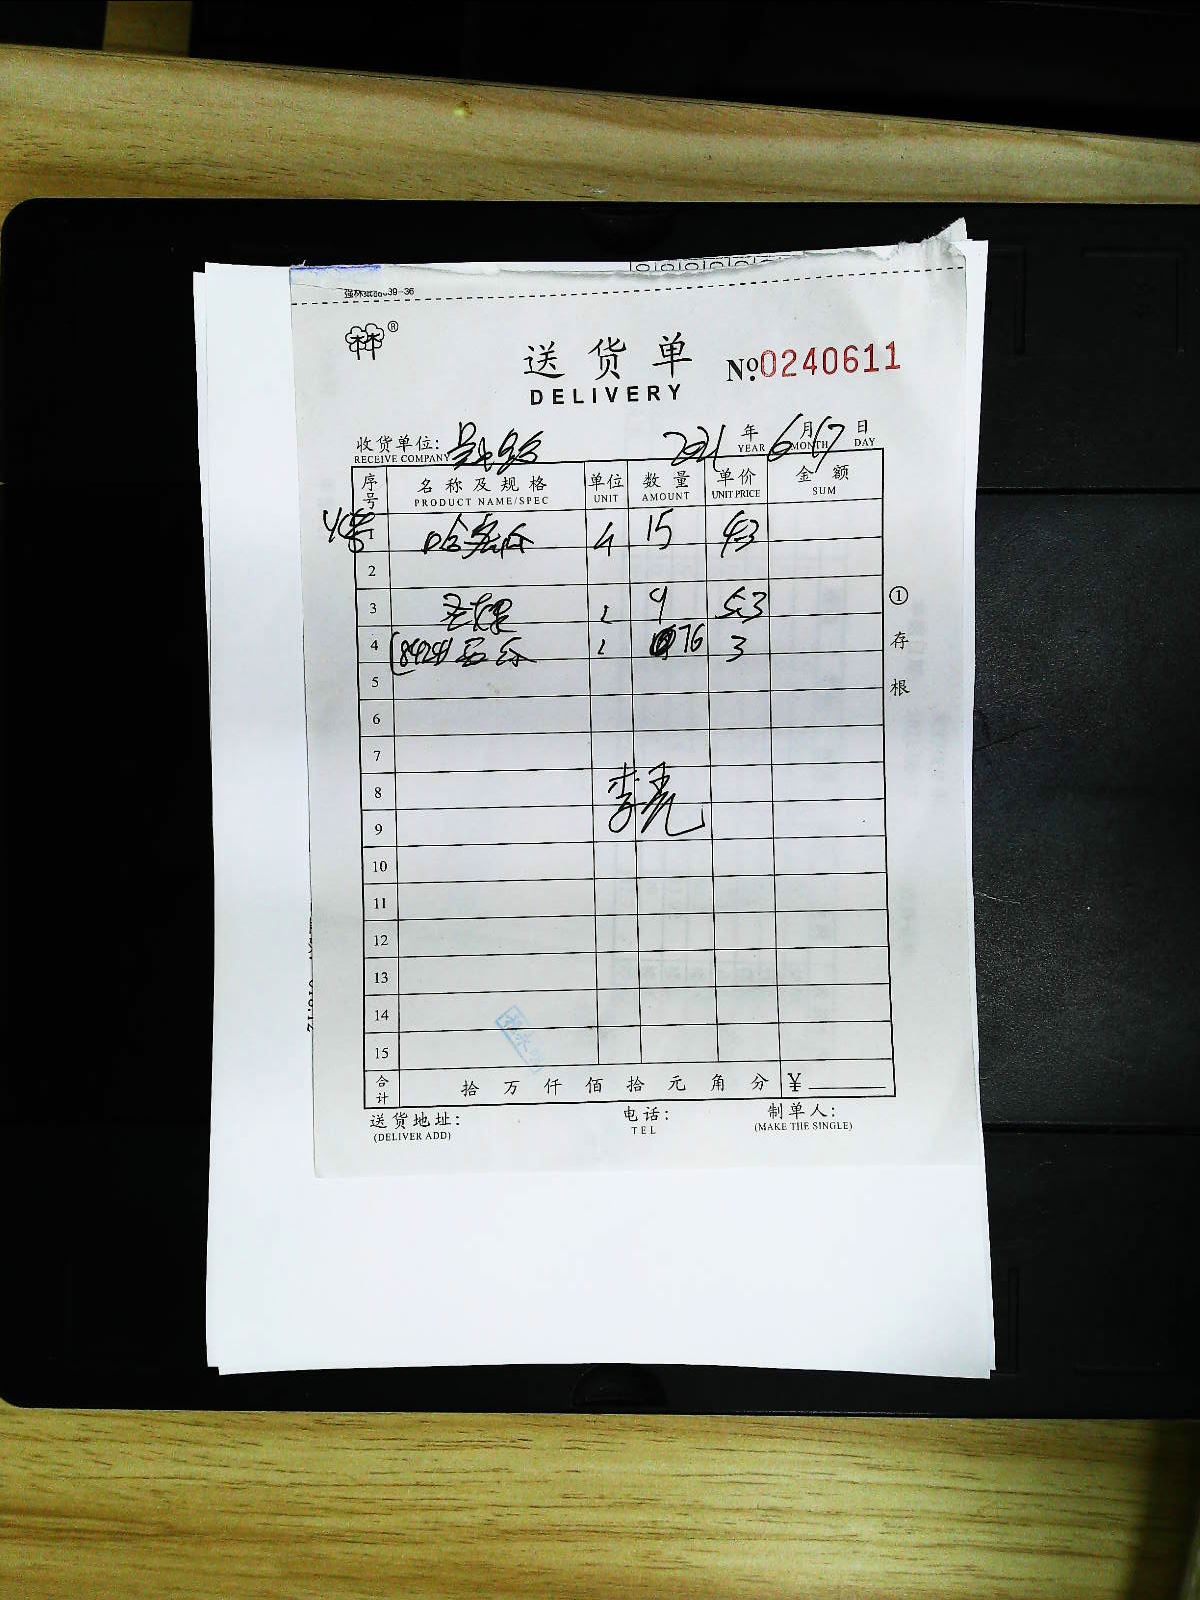 39-36
®
送货单
№0240611
DELIVERY
收货单位: 2021 年 6 月 17 日
RECEIVE COMPANY YEAR MONTH DAY
序号 名称及规格 单位 数量 单价 金额
PRODUCT NAME/SPEC UNIT AMOUNT UNIT PRICE SUM
1 哈密瓜 15 4.3
2
3 9 5.3
4 (8424) 西瓜 76 3
5
6
7
8 李亮
9
10
11
12
13
14
15
① 存根
合计 拾万仟佰拾元角分 ¥
送货地址: 电话: 制单人:
(DELIVER ADD) TEL (MAKE THE SINGLE)